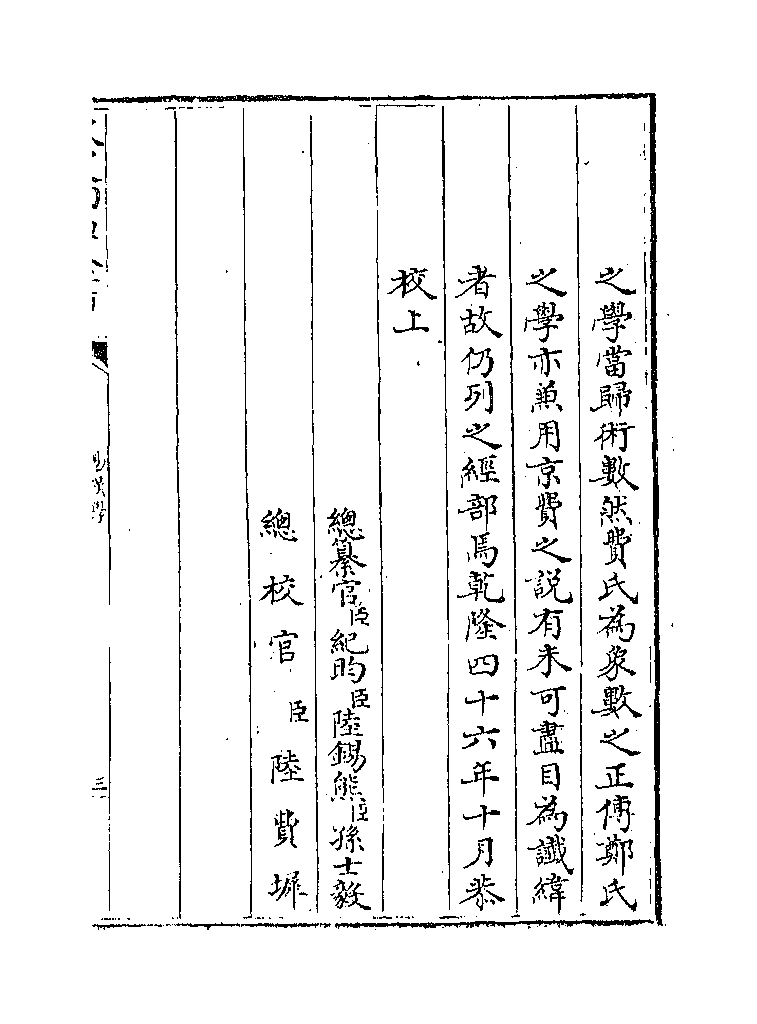 之學當歸術數然費氏為象數之正傳鄭氏
之學亦兼用京費之說有未可盡目為讖緯
者故仍列之經部焉乾隆四十六年十月恭
校上
總纂官臣紀昀臣陸錫熊臣孫士毅
總校官臣陸費墀
易漢學
三